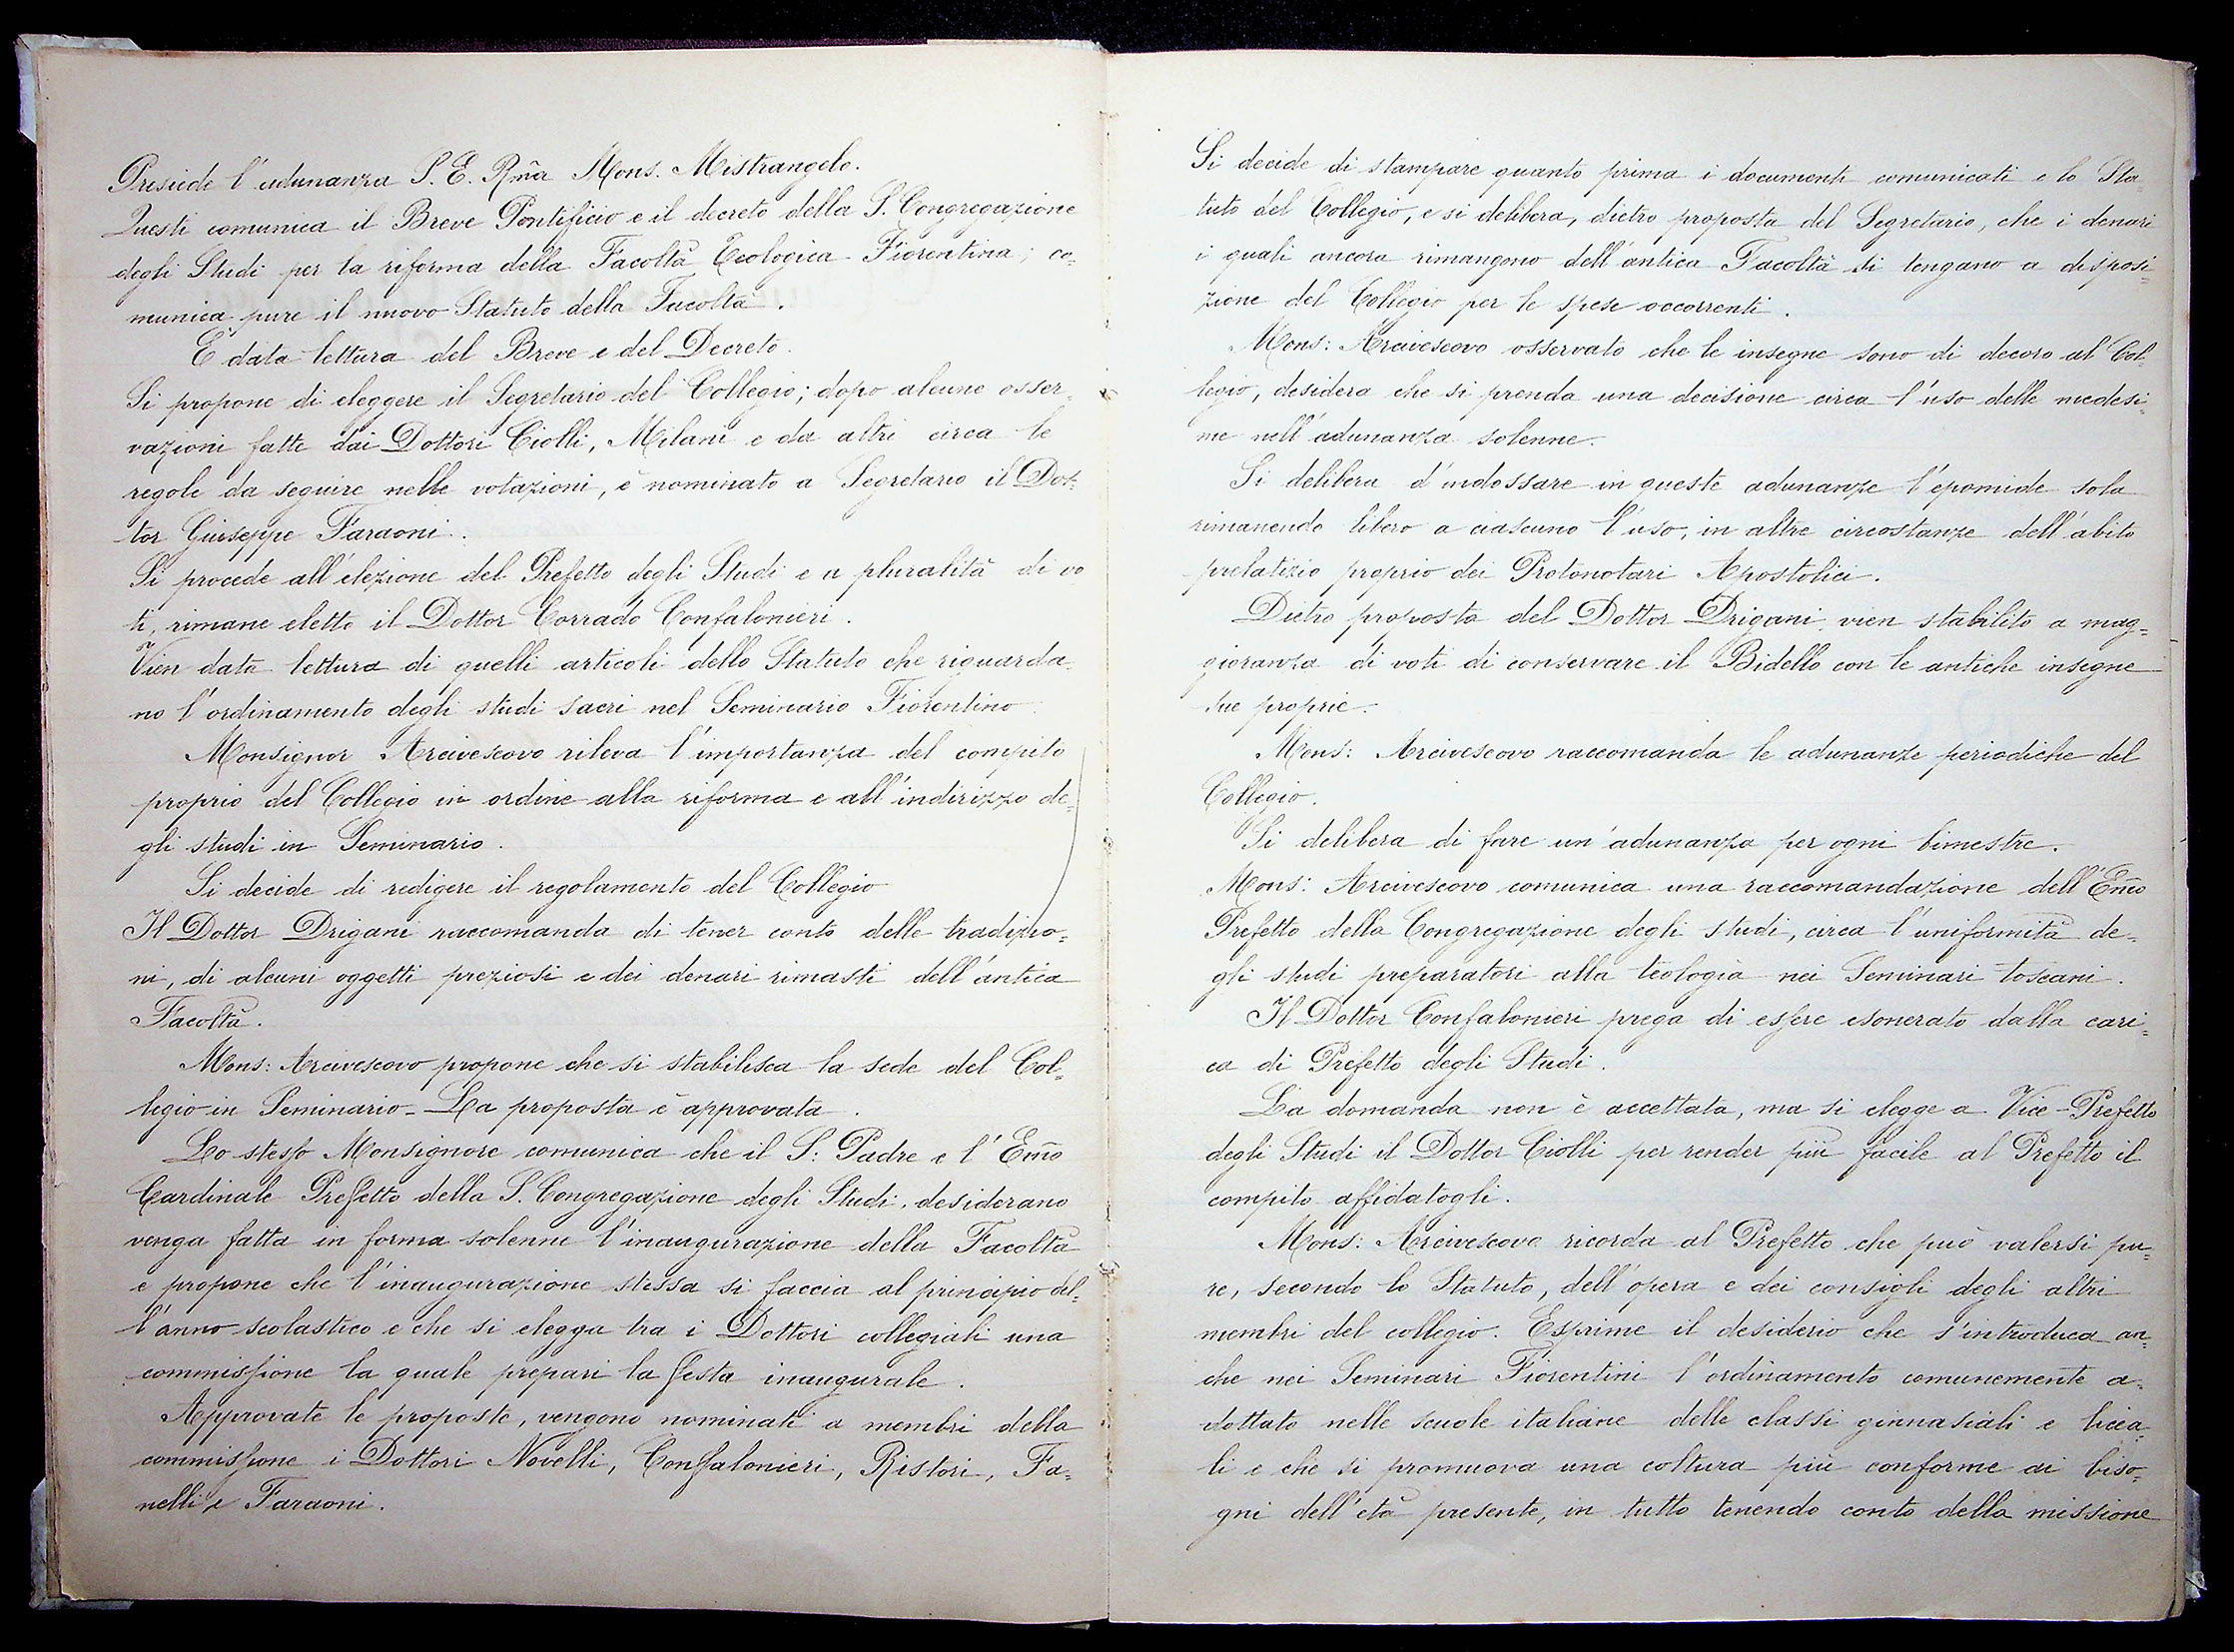 Presiede l'adunanza S. E. Rm̃a Mons. Mistrangelo.
Questi comunica il Breve Pontificio e il decreto della S. Congregazione
degli Studi per la riforma della Facoltà Teologica Fiorentina; co-
munica pure il nuovo Statuto della Facoltà.
È data lettura del Breve e del Decreto.
Si propone di eleggere il Segretario del Collegio; dopo alcune osser=
vazioni fatte dai Dottori Ciolli, Milani e da altri circa le
regole da seguire nelle votazioni, è nominato a Segretario il Dot=
tor Giuseppe Faraoni.
Si procede all'elezione del Prefetto degli Studi e a pluralità di vo
ti, rimane eletto il Dottor Corrado Confalonieri.
Vien data lettura di quelli articoli dello Statuto che riguarda-
no l'ordinamento degli studi sacri nel Seminario Fiorentino.
Monsignor Arcivescovo rileva l'importanza del compito
proprio del Collegio in ordine alla riforma e all'indirizzo de=
gli studi in Seminario.
Si decide di redigere il regolamento del Collegio
Il Dottor Drigani raccomanda di tener conto delle tradizio=
ni, di alcuni oggetti preziosi e dei denari rimasti dell'antica
Facoltà.
Mons: Arcivescovo propone che si stabilisca la sede del Col=
legio in Seminario - La proposta è approvata.
Lo stesso Monsignore comunica che il S: Padre e l'Em̃o
Cardinale Prefetto della S. Congregazione degli Studi, desiderano
venga fatta in forma solenne l'inaugurazione della Facoltà
e propone che l'inaugurazione stessa si faccia al principio del=
l'anno scolastico e che si elegga tra i Dottori collegiali una
commissione la quale prepari la festa inaugurale.
Approvate le proposte, vengono nominati a membri della
commissione i Dottori Novelli, Confalonieri, Ristori, Fa=
nelli e Faraoni.
Si decide di stampare quanto prima i documenti comunicati e lo Sta=
tuto del Collegio, e si delibera, dietro proposta del Segretario, che i denari
i quali ancora rimangono dell'antica Facoltà si tengano a disposi=
zione del Collegio per le spese occorrenti.
Mons: Arcivescovo osservato che le insegne sono di decoro al Col-
legio, desidera che si prenda una decisione circa l'uso delle medesi=
me nell'adunanza solenne.
Si delibera d'indossare in queste adunanze l'epomide sola
rimanendo libero a ciascuno l'uso, in altre circostanze dell'abito
prelatizio proprio dei Protonotari Apostolici.
Dietro proposta del Dottor Drigani, vien stabilito a mag=
gioranza di voti di conservare il Bidello con le antiche insegne
sue proprie.
Mons: Arcivescovo raccomanda le adunanze periodiche del
Collegio.
Si delibera di fare un'adunanza per ogni bimestre.
Mons: Arcivescovo comunica una raccomandazione dell'Em̃o
Prefetto della Congregazione degli studi, circa l'uniformità de-
gli studi preparatori alla teologia nei Seminari toscani.
Il Dottor Confalonieri prega di essere esonerato dalla cari=
ca di Prefetto degli Studi.
La domanda non è accettata, ma si elegge a Vice-Prefetto
degli Studi il Dottor Ciolli per render più facile al Prefetto il
compito affidatogli.
Mons: Arcivescovo ricorda al Prefetto che può valersi pu=
re, secondo lo Statuto, dell'opera e dei consigli degli altri
membri del collegio. Esprime il desiderio che s'introduca an=
che nei Seminari Fiorentini l'ordinamento comunemente a=
dottato nelle scuole italiane delle classi ginnasiali e licea=
li e che si promuova una coltura più conforme ai biso=
gni dell'età presente, in tutto tenendo conto della missione